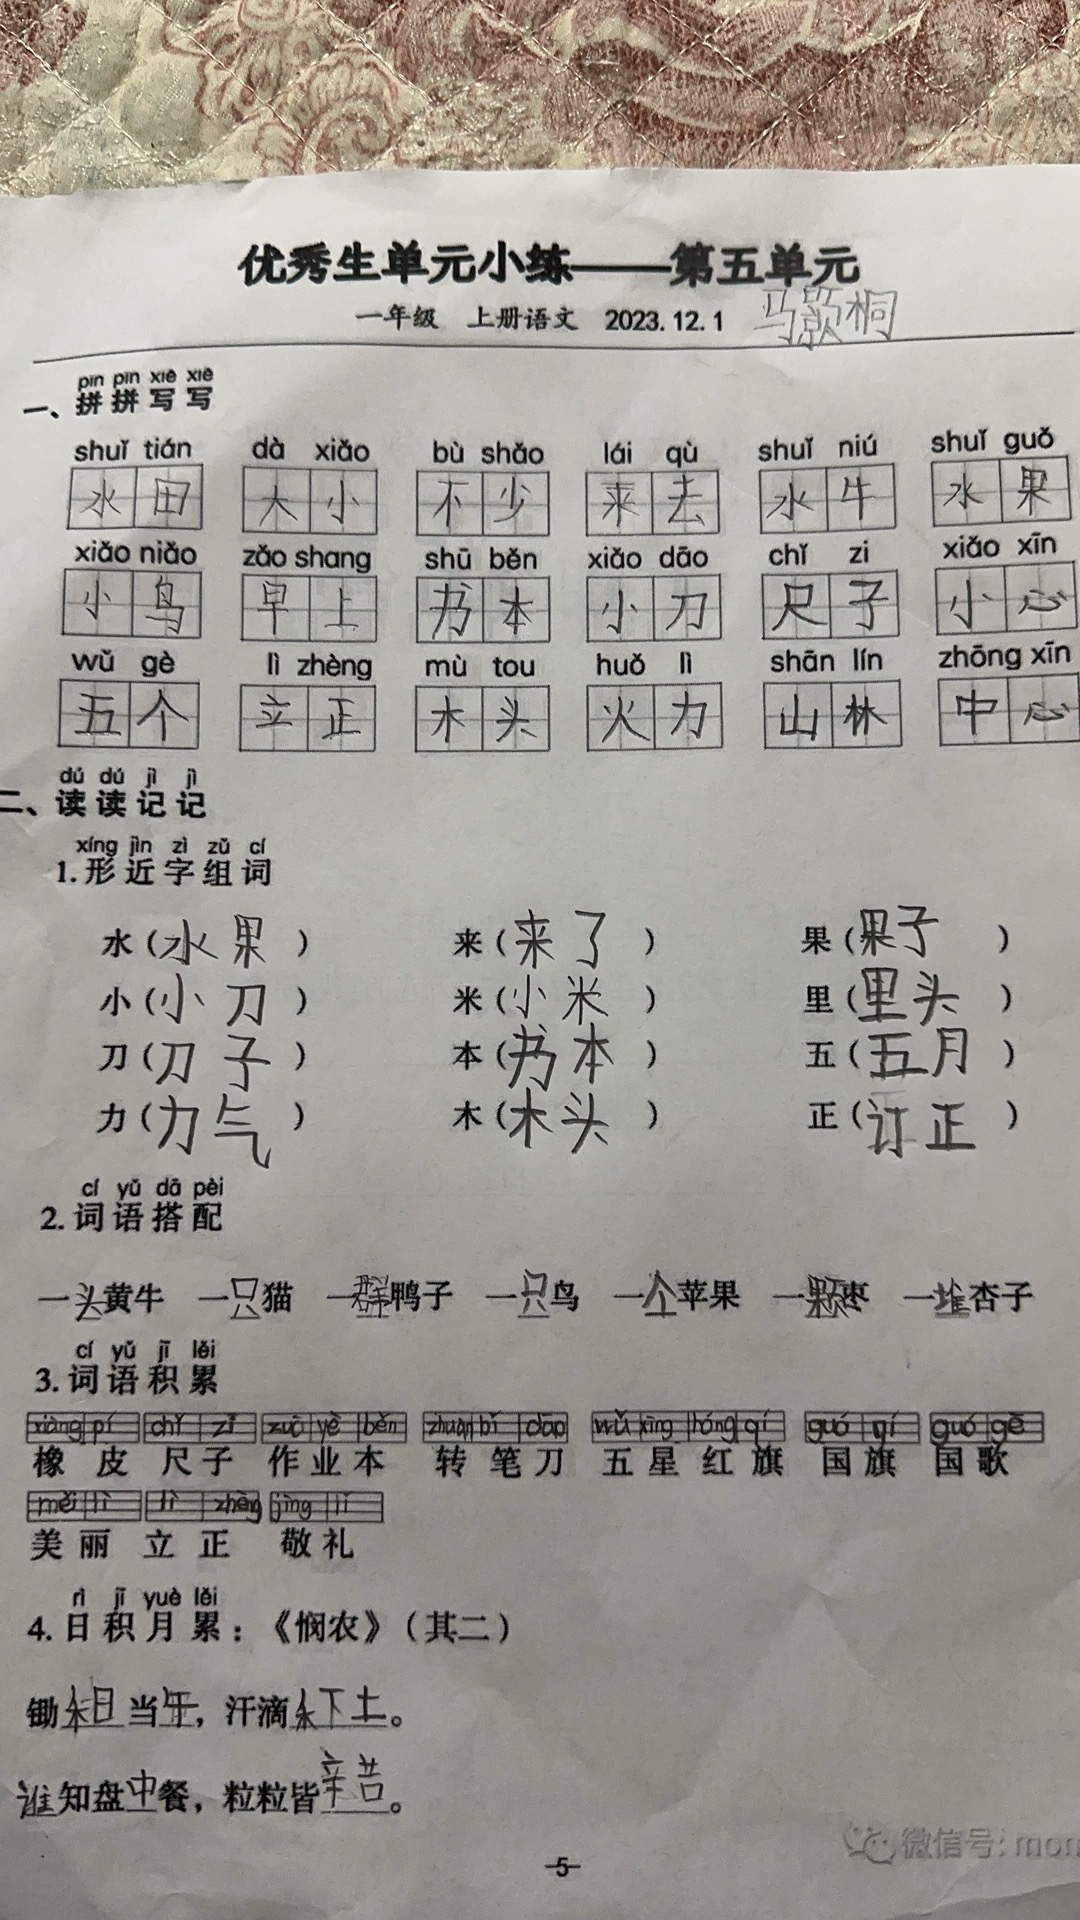 优秀生单元小练——第五单元
一年级 上册语文 2023.12.1 马颢桐
pīn pīn xiě xiě
一、拼拼写写
shuǐ tián dà xiǎo bù shǎo lái qù shuǐ niú shuǐ guǒ
水田 大小 不少 来去 水牛 水果
xiǎo niǎo zǎo shang shū běn xiǎo dāo chǐ zi xiǎo xīn
小鸟 早上 书本 小刀 尺子 小心
wǔ gè lì zhèng mù tou huǒ lì shān lín zhōng xīn
五个 立正 木头 火力 山林 中心
dú dú jì jì
二、读读记记
xíng jìn zì zǔ cí
1.形近字组词
水(水果) 来(来了) 果(果子)
小(小刀) 米(小米) 里(里头)
刀(刀子) 本(书本) 五(五月)
力(力气) 木(木头) 正(订正)
cí yǔ dā pèi
2.词语搭配
一头黄牛 一只猫 一群鸭子 一只鸟 一个苹果 一颗枣 一堆杏子
cí yǔ jī lěi
3.词语积累
xiàng pí chǐ zi zuò yè běn zhuàn bǐ dāo wǔ xīng hóng qí guó qí guó gē
橡皮 尺子 作业本 转笔刀 五星红旗 国旗 国歌
měi lì lì zhèng jìng lǐ
美丽 立正 敬礼
rì jī yuè lěi
4.日积月累：《悯农》（其二）
锄禾日当午，汗滴禾下土。
谁知盘中餐，粒粒皆辛苦。
微信号: mom
5